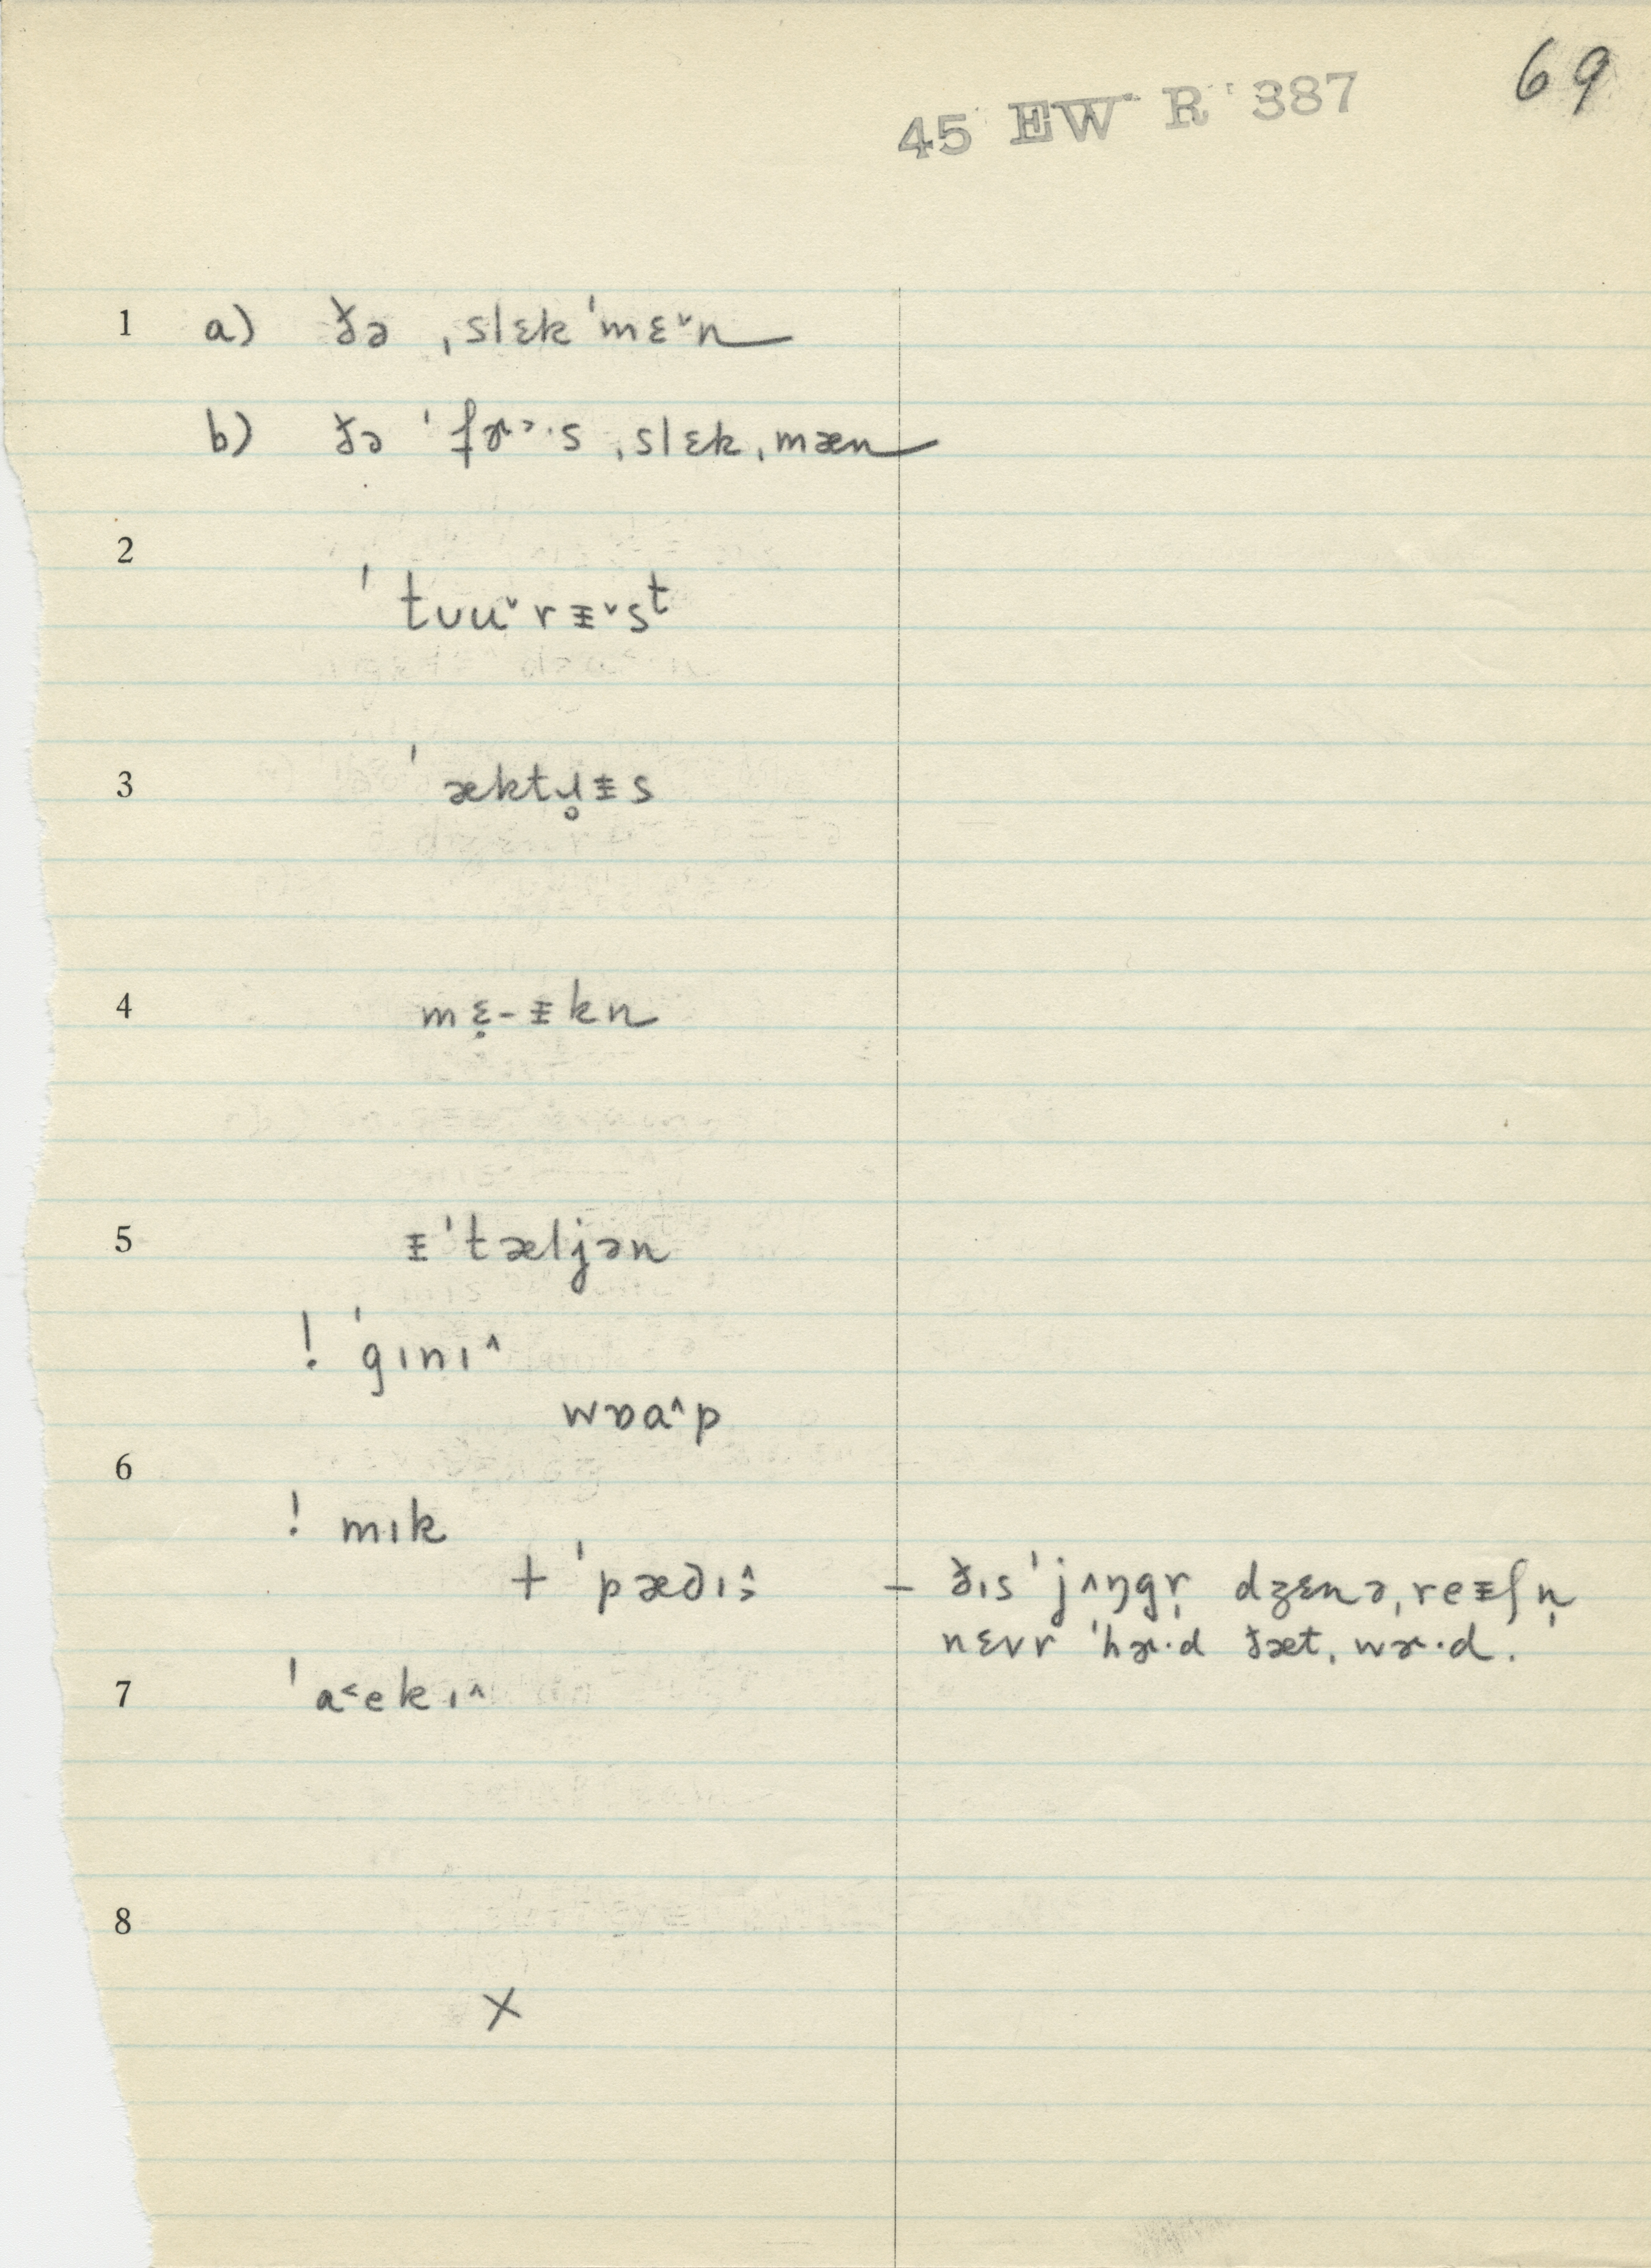 69
45 EW R 387
1 a) ðə ˌslɛkˈmɛ˅n
b) ðə ˈfɚ˃·s ˌslɛkˌmæn
2
ˈtʊu˅rᵻ˅sᵗ
3 ˈæktɹ̥ᵻs
4 mɛ̣-ᵻkn
5 ᵻˈtæljən
! ˈgɪnɪ^
wɒɑ^p
6
! mɪk
+ ˈpædɪ^˃ – ðɪsˈjʌŋgr̩ dʒɛnəˌreᵻʃn̩
nɛvr ˈhɚ·d ðætˌwɚ·d.
7 ˈa˂ekɪ^
8
X